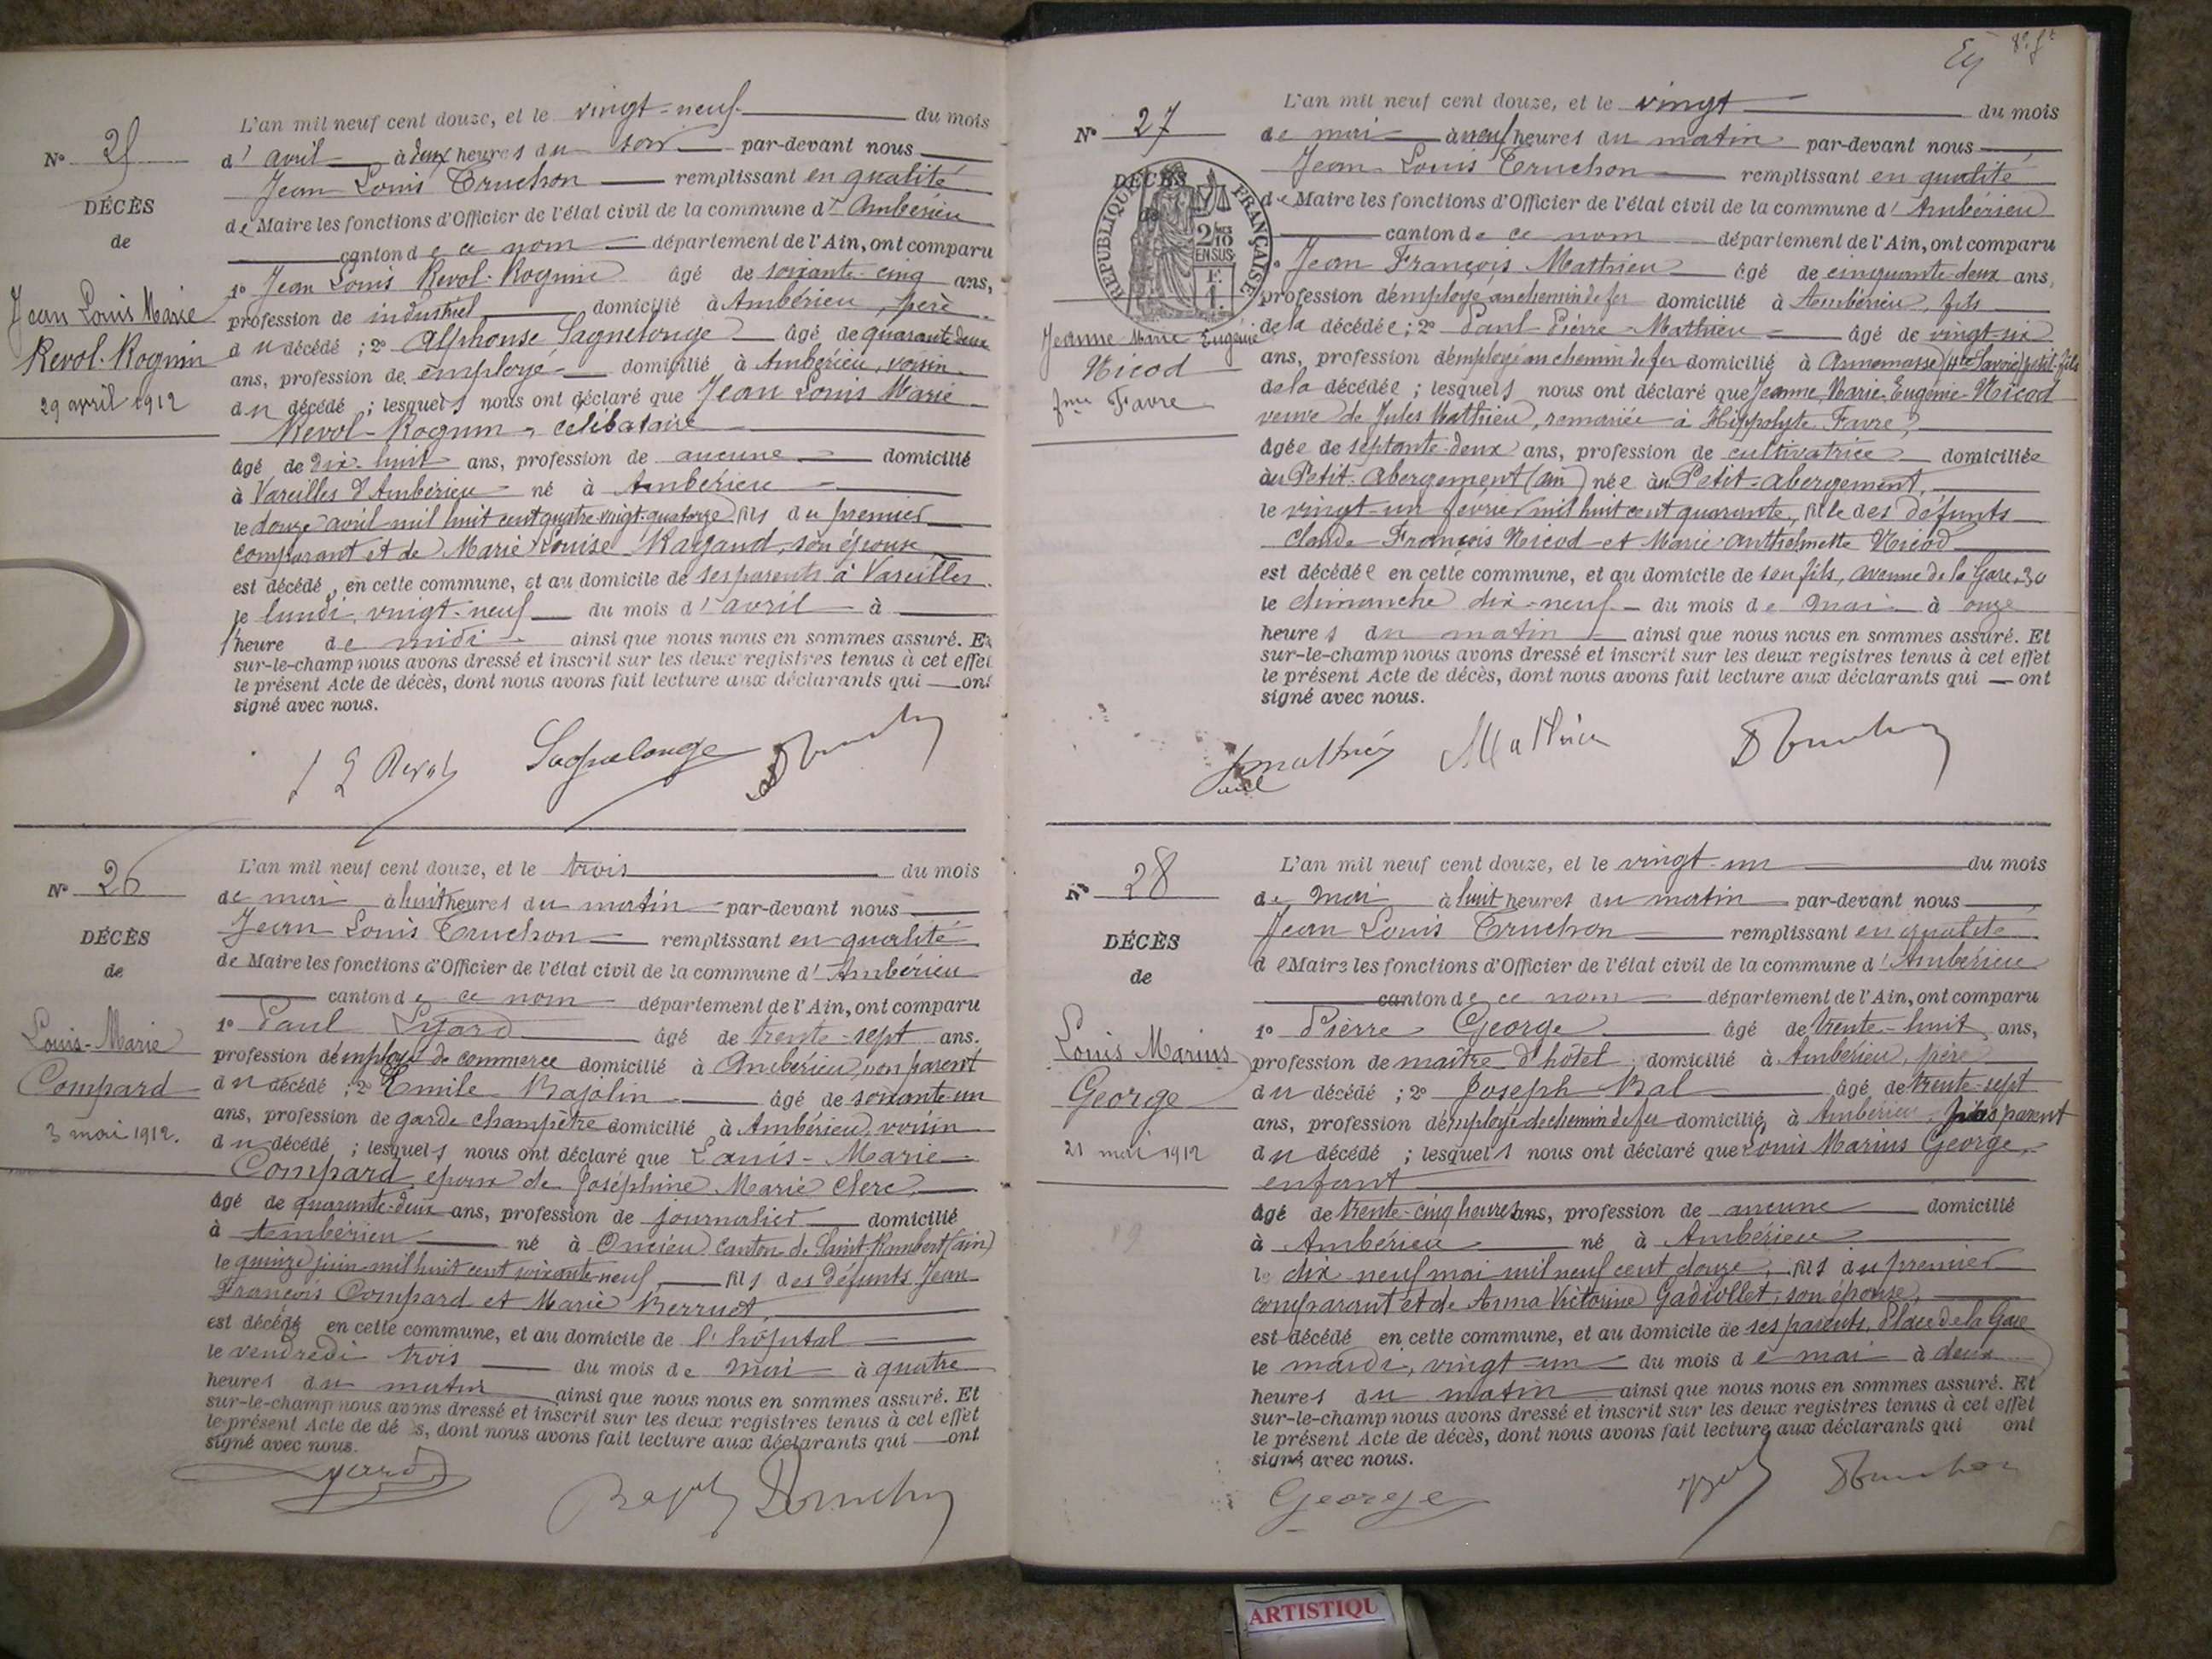 N° 25
DÉCÈS
de
Jean Louis Marie
Revol-Rognin
29 avril 1912
L'an mil neuf cent douze, et le vingt-neuf du mois
d'avril à deux heures du soir par-devant nous
Jean Louis Truchon remplissant en qualité
de Maire les fonctions d'Officier de l'état civil de la commune d'Ambérieu
canton de ce nom département de l'Ain, ont comparu
1° Jean Louis Revol-Rognin âgé de soixante-cinq ans,
profession de industriel domicilié à Ambérieu, père
du décédé ; 2° Alphonse Lagnelonge âgé de quarante deux
ans, profession de employé domicilié à Ambérieu, voisin
du décédé ; lesquels nous ont déclaré que Jean Louis Marie
Revol-Rognin, célibataire
âgé de dix-huit ans, profession de aucune domicilié
à Vareilles d'Ambérieu né à Ambérieu
le douze avril mil huit cent quatre-vingt-quatorze fils du premier
comparant et de Marie Louise Raygaud, son épouse
est décédé, en cette commune, et au domicile de ses parents à Vareilles
le lundi, vingt-neuf du mois d'avril à
heure de midi ainsi que nous nous en sommes assuré. Et
sur-le-champ nous avons dressé et inscrit sur les deux registres tenus à cet effet
le présent Acte de décès, dont nous avons fait lecture aux déclarants qui ont
signé avec nous.
J L Revol Lagnelonge JLTruchon
N° 26
DÉCÈS
de
Louis-Marie
Compard
3 mai 1912.
L'an mil neuf cent douze, et le trois du mois
de mai à huit heures du matin par-devant nous
Jean Louis Truchon remplissant en qualité
de Maire les fonctions d'Officier de l'état civil de la commune d'Ambérieu
canton de ce nom département de l'Ain, ont comparu
1° Paul Lyard âgé de trente-sept ans.
profession d'employé de commerce domicilié à Ambérieu, non parent
du décédé ; 2° Emile Bajolin âgé de soixante-un
ans, profession de garde champêtre domicilié à Ambérieu, voisin
du décédé ; lesquels nous ont déclaré que Louis-Marie
Compard, époux de Joséphine Marie Clerc,
âgé de quarante-deux ans, profession de journalier domicilié
à Ambérieu né à Oncieu canton de Saint-Rambert (ain)
le quinze juin mil huit cent soixante-neuf, fils des défunts Jean
François Compard et Marie Berruet,
est décédé en cette commune, et au domicile de l'hôpital
le vendredi trois du mois de mai à quatre
heures du matin ainsi que nous nous en sommes assuré. Et
sur-le-champ nous avons dressé et inscrit sur les deux registres tenus à cet effet
le présent Acte de dé s, dont nous avons fait lecture aux déclarants qui ont
signé avec nous.
Lyard Bajolin JLTruchon
8e ft
N° 27
DÉCÈS
de
RÉPUBLIQUE FRANÇAISE
2/10
EN SUS
F.
1.
Jeanne-Marie Eugénie
Nicod
fme Favre
L'an mil neuf cent douze, et le vingt du mois
de mai à neuf heures du matin par-devant nous
Jean Louis Truchon remplissant en qualité
de Maire les fonctions d'Officier de l'état civil de la commune d'Ambérieu
canton de ce nom département de l'Ain, ont comparu
1° Jean François Mathieu âgé de cinquante-deux ans,
profession d'employé au chemin de fer domicilié à Ambérieu, fils
de la décédée ; 2° Paul Pierre Mathieu âgé de vingt-six
ans, profession d'employé au chemin de fer domicilié à Annemasse (Hte Savoie) petit-fils
de la décédée ; lesquels nous ont déclaré que Jeanne Marie-Eugénie-Nicod
veuve de Jules Mathieu, remariée à Hippolyte Favre,
âgée de septante-deux ans, profession de cultivatrice domiciliée
au Petit-Abergement (ain) née au Petit-abergement,
le vingt-un février mil huit cent quarante, fille des défunts
Claude-François Nicod et Marie anthelmette Nicod
est décédée en cette commune, et au domicile de son fils, avenue de la Gare, 30
le dimanche dix-neuf du mois de mai à onze
heures du matin ainsi que nous nous en sommes assuré. Et
sur-le-champ nous avons dressé et inscrit sur les deux registres tenus à cet effet
le présent Acte de décès, dont nous avons fait lecture aux déclarants qui ont
signé avec nous.
Jmathieu Mathieu JLTruchon
N° 28
DÉCÈS
de
Louis Marius
George
21 mai 1912
L'an mil neuf cent douze, et le vingt-un du mois
de mai à huit heures du matin par-devant nous
Jean Louis Truchon remplissant en qualité
de Maire les fonctions d'Officier de l'état civil de la commune d'Ambérieu
canton de ce nom département de l'Ain, ont comparu
1° Pierre George âgé de trente-huit ans,
profession de maître d'hôtel domicilié à Ambérieu, père
du décédé ; 2° Joseph Bal âgé de trente-sept
ans, profession d'employé de chemin de fer domicilié à Ambérieu, pas parent
du décédé ; lesquels nous ont déclaré que Louis Marius George,
enfant
âgé de trente-cinq heures ans, profession de aucune domicilié
à Ambérieu né à Ambérieu
le dix neuf mai mil neuf cent douze, fils du premier
comparant et de Anna Victorine Gadiollet, son épouse,
est décédé en cette commune, et au domicile de ses parents, Place de la Gare
le mardi, vingt-un du mois de mai à deux
heures du matin ainsi que nous nous en sommes assuré. Et
sur-le-champ nous avons dressé et inscrit sur les deux registres tenus à cet effet
le présent Acte de décès, dont nous avons fait lecture aux déclarants qui ont
signé avec nous.
George Bal JLTruchon
ARTISTIQU